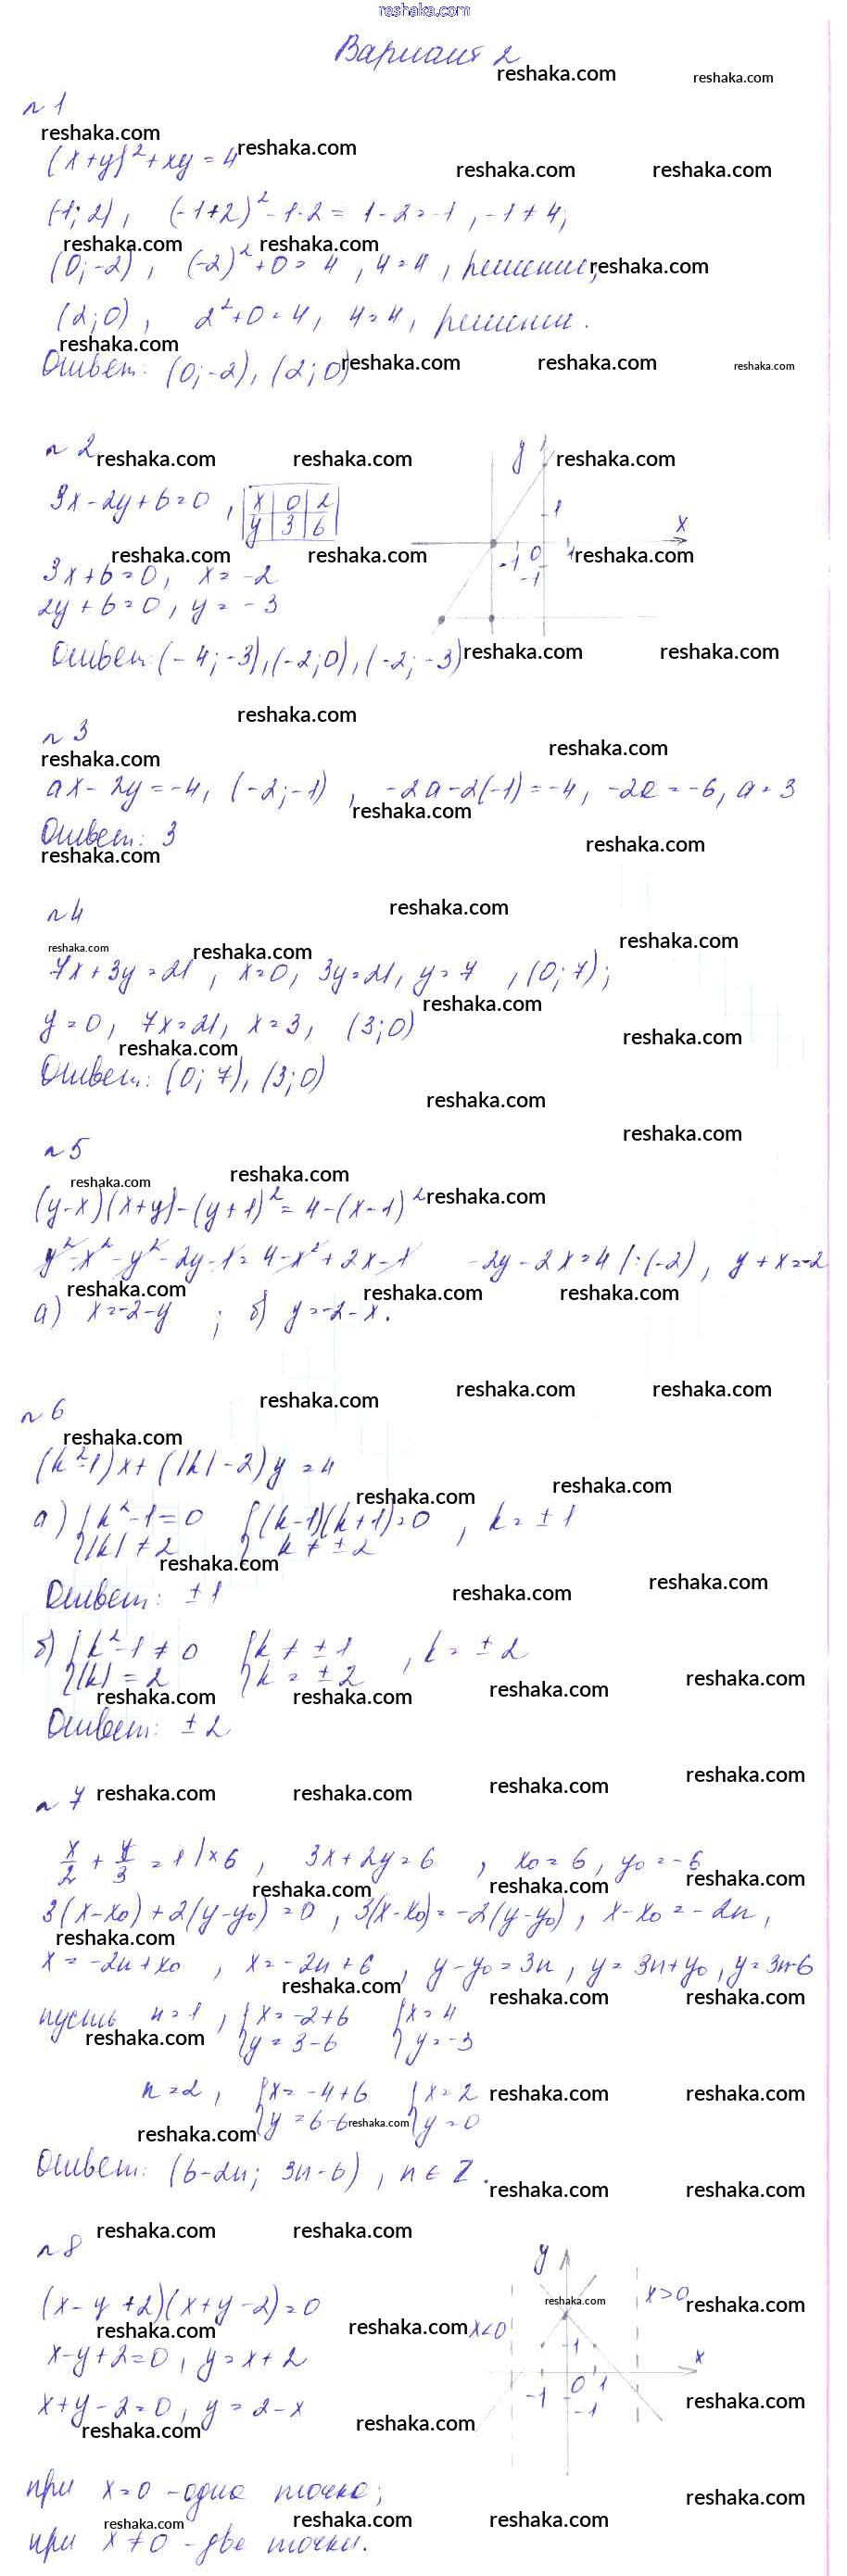 reshaka.com
Вариант 2
n 1
(x+y)² + xy = 4
(-1; 2), (-1+2)² - 1·2 = 1-2 = -1, -1 ≠ 4;
(0; -2), (-2)² + 0 = 4, 4=4, решение;
(2; 0), 2²+0=4, 4=4, решение.
Ответ: (0; -2), (2; 0)
n 2
3x-2y+6=0, x 0 2
y 3 6
3x+6=0, x = -2
2y+6=0, y = -3
Ответ: (-4; -3), (-2; 0), (-2; -3)
y
1
x
-1 0 1
-1
n 3
ax-2y=-4, (-2; -1), -2a-2(-1)=-4, -2a=-6, a=3
Ответ: 3
n 4
7x+3y=21, x=0, 3y=21, y=7, (0; 7);
y=0, 7x=21, x=3, (3; 0)
Ответ: (0; 7), (3; 0)
n 5
(y-x)(x+y)-(y+1)²=4-(x-1)²
y²-x²-y²-2y-1=4-x²+2x-1 -2y-2x=4 |:(-2), y+x=-2
а) x=-2-y; б) y=-2-x.
n 6
(k²-1)x+(|k|-2)y=4
а) {k²-1=0 {(k-1)(k+1)=0, k=±1
{|k|≠2 {k≠±2
Ответ: ±1
б) {k²-1≠0 {k≠±1, k=±2
{|k|=2 {k=±2
Ответ: ±2
n 7
x/2 + y/3 = 1 |×6, 3x+2y=6, x₀=6, y₀=-6
3(x-x₀)+2(y-y₀)=0, 3(x-x₀)=-2(y-y₀), x-x₀=-2n,
x=-2n+x₀, x=-2n+6, y-y₀=3n, y=3n+y₀, y=3n-6
пусть n=1, {x=-2+6 {x=4
{y=3-6 {y=-3
n=2, {x=-4+6 {x=2
{y=6-6 {y=0
Ответ: (6-2n; 3n-6), n∈Z.
n 8
(x-y+2)(x+y-2)=0
x-y+2=0, y=x+2
x+y-2=0, y=2-x
y
x<0
x>0
1
x
-1 0 1
-1
при x=0 - одна точка;
при x≠0 - две точки.